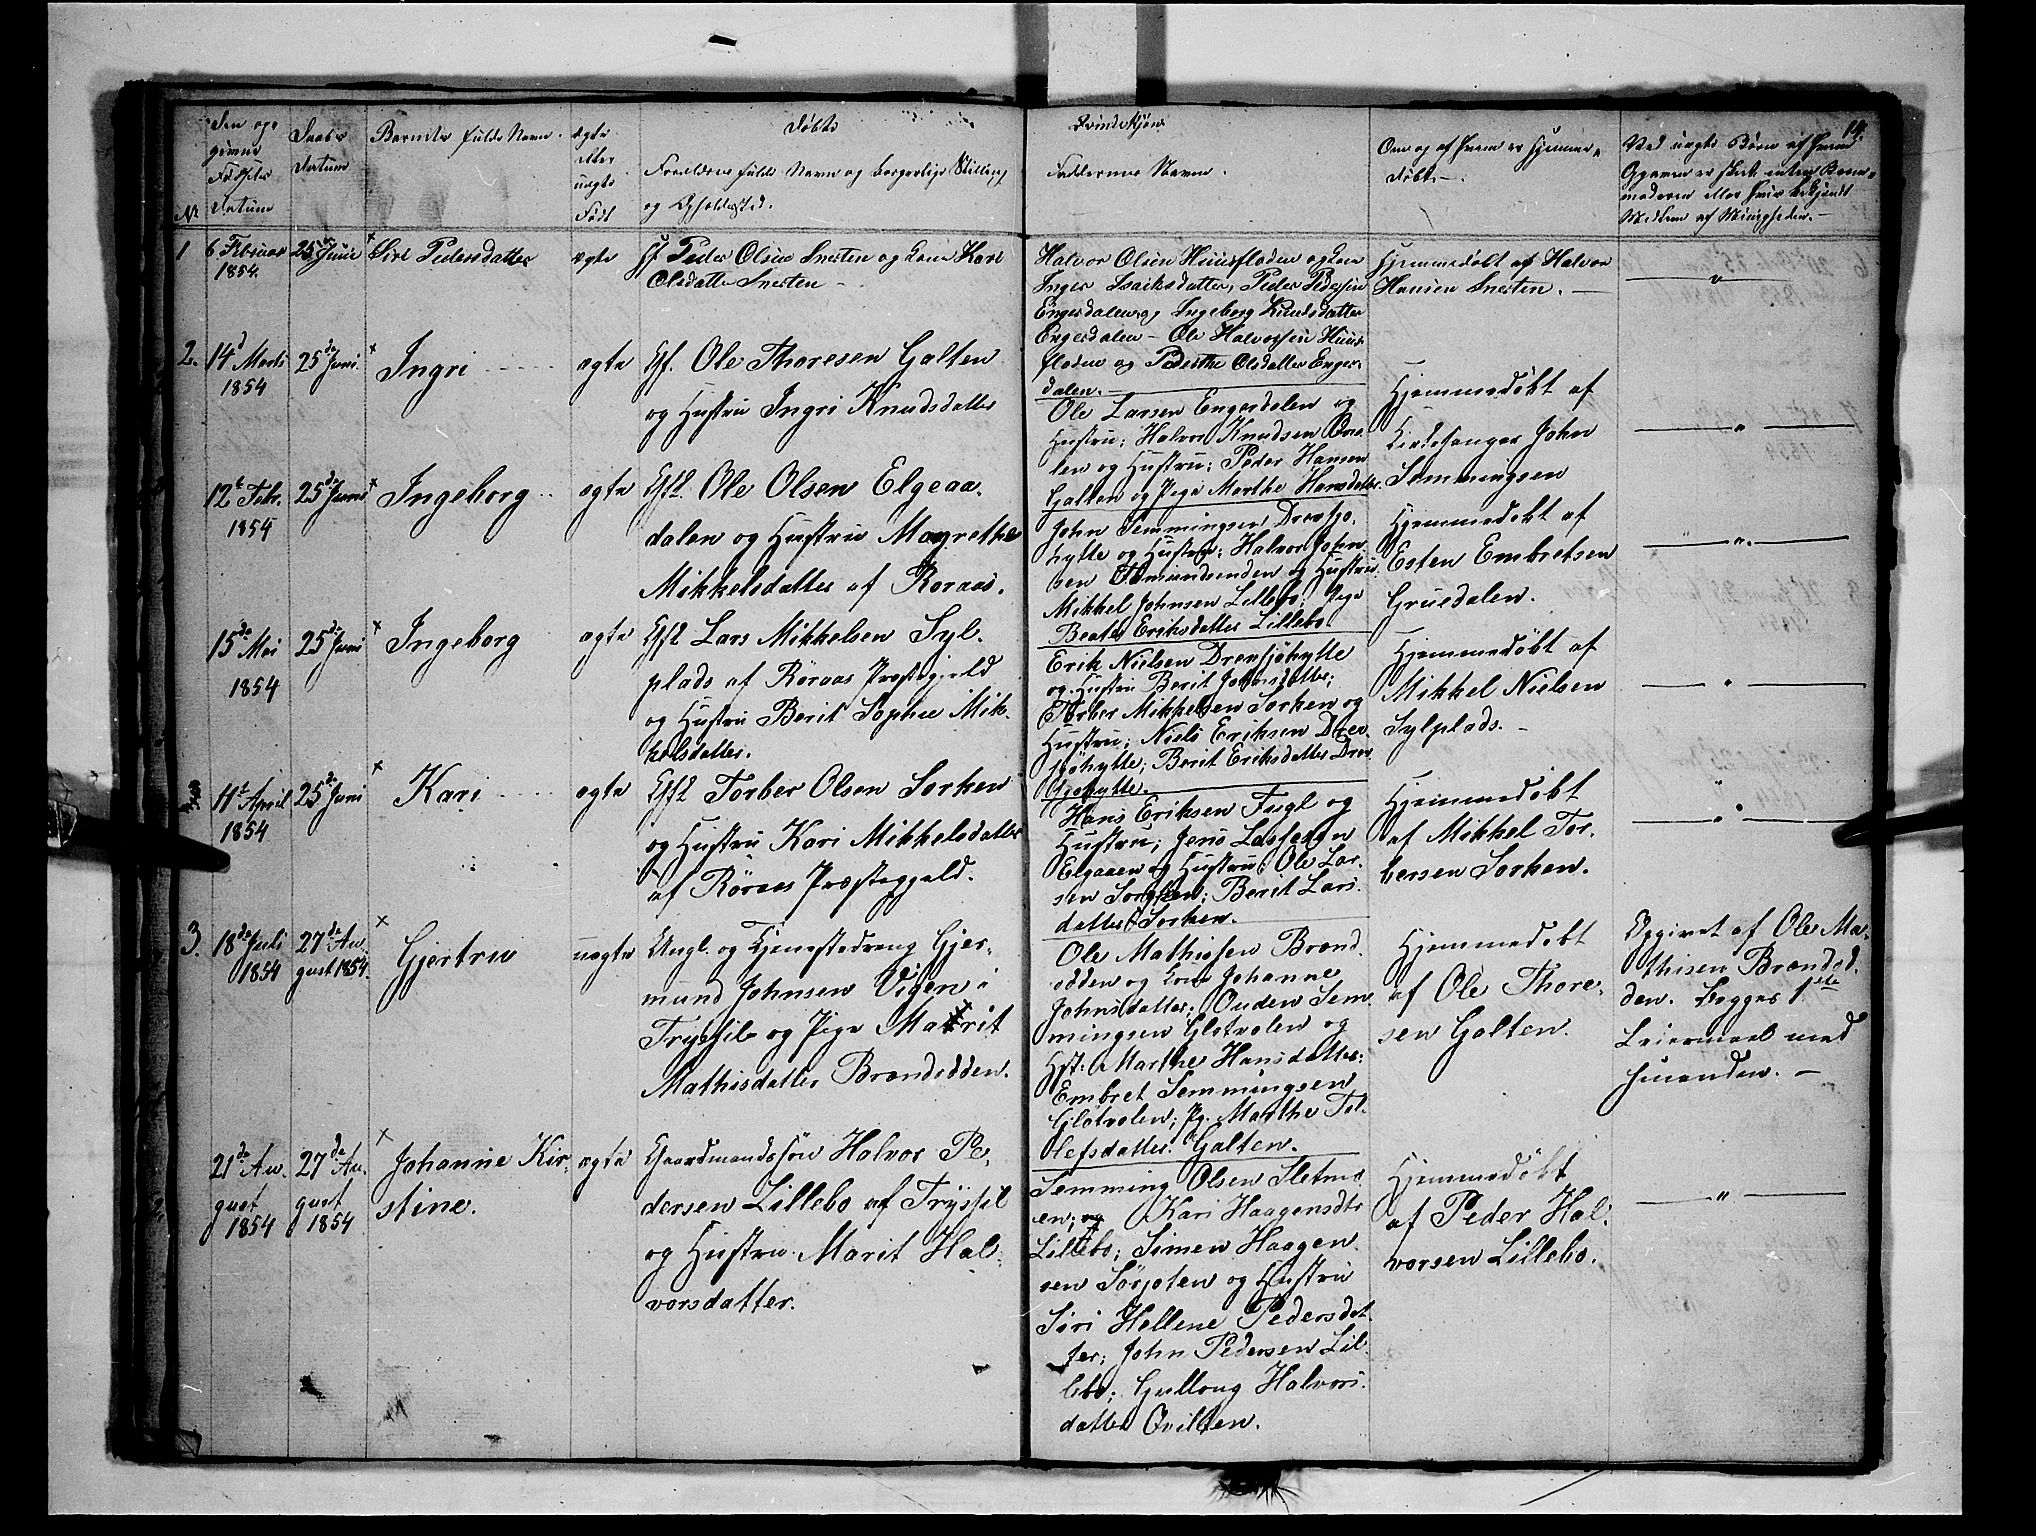 14.
Døbte
Qvindekjøn
No
Den op-
givne
Fødsels
Datum
Daabs
Datum
Barnets fulde Navn.
ægte
eller
uægte
Født
Forældres fulde Navn og borgerlige Stilling
og Opholdssted.
Faddernes Navn.
Om og af hvem er hjemme-
døbt.
Ved uægte Børn af hvem
Opgaven er skeet enten Barne-
moderen eller hvis bekjendt
1
6 Februar
1854.
25 Juni
Siri Pedersdatter
ægte
Gf. Peder Olsen Snerten og Kone Kari
Olsdatter Snerten
Halvor Olsen Huusfloden og Kone
Inger Isaksdatter, Peder Pedersen
Engerdalen og Ingeborg Knudsdatter
Engerdalen - Ole Halvorsen Huus-
floden og Berthe Olsdatter Enger-
dalen.
Hjemmedøbt af Halvor
Hansen Snerten.
"
2.
14d Marts
1854
25de Juni
Ingri
ægte
Gf. Ole Thoresen Galten
og Hustru Ingri Knudsdatter
Ole Larsen Engerdalen og
Hustru; Halvor Knudsen
len og Hustru; Peder Hansen
Galten og Pige Marthe Hansdatter.
Hjemmedøbt af
Kirkesanger John
Semmingsen
"
12te Febr.
1854
25de Juni
Ingeborg
ægte
Gfl. Ole Olsen Elgeaa-
dalen og Hustru Magrethe
Mikkelsdatter af Roraas.
John Semmingsen Drevsjø-
hytte og Hustru; Halvor John-
sen Osmundsenden og Hustru
Mikkel Johnsen Lillebo; Pige
Beate Eriksdatter Lillebo
Hjemmedøbt af
Esten Embretsen
Gruedalen.
"
15de Mai
1854
25de Juni
Ingeborg
ægte
Gfl Lars Mikkelsen Syl-
plads af Röraas Præstegjeld
og Hustru Berit Sophie Mik-
kelsdatter.
Erik Nielsen Drevsjöhytte
og Hustru Berit Johnsdatter;
Torber Mikkelsen Sorken og
Hustru; Niels Eriksen Drev-
sjöhytte; Berit Eriksdatter Drev-
sjøhytte.
Hjemmedöbt af
Mikkel Nielsen
Sylplads.
"
11te April
1854
25de Juni
Kari
ægte
Gfl Torber Olsen Sorken
og Hustru Kari Mikkelsdatter
af Röraas Præstegjeld.
Hans Eriksen Fugl og
Hustru; Jens Lassesen
Elgaaen og Hustru; Ole Lar-
sen Sorken; Berit Lars-
datter Sorken.
Hjemmedöbt
af Mikkel Tor-
bersen Sorken.
"
3.
18de Juli
1854
27de Au-
gust 1854.
Gjertru
uægte
Ungk. og Tjenestedreng Gjer-
mund Johnsen Vigen i
Trysil og Pige Marit
Mathisdatter Brændodden.
Ole Mathissen Brænd-
odden og Kone Johanne
Johnsdatter; Ouden Sem-
mingsen Glötvolen og
Hst: Marthe Hansdatter;
Embret Semmingsen
Glötvolen; Pg. Marthe Tol-
lefsdatter Galten.
Hjemmedöbt
af Ole Thore-
sen Galten.
Opgivet af Ole Ma-
thisen Brændod-
den. Begges 1ste
Leiermaal med
hinanden.
21de Au-
gust
1854
27de Au-
gust
1854
Johanne Kir-
stine.
ægte
Gaardmandssön Halvor Pe-
dersen Lillebo af Trysil
og Hustru Marit Hal-
vorsdatter.
Semming Olsen Sletmo-
en; og Kari Haagensdtr
Lillebo; Simen Haagen-
sen Sörjoten og Hustru
Siri Hellene Pedersdat-
ter; John Pedersen Lil-
lebo; Gulloug Halvors-
datter Qvilten.
Hjemmedöbt
af Peder Hal-
vorsen Lillebo.
"